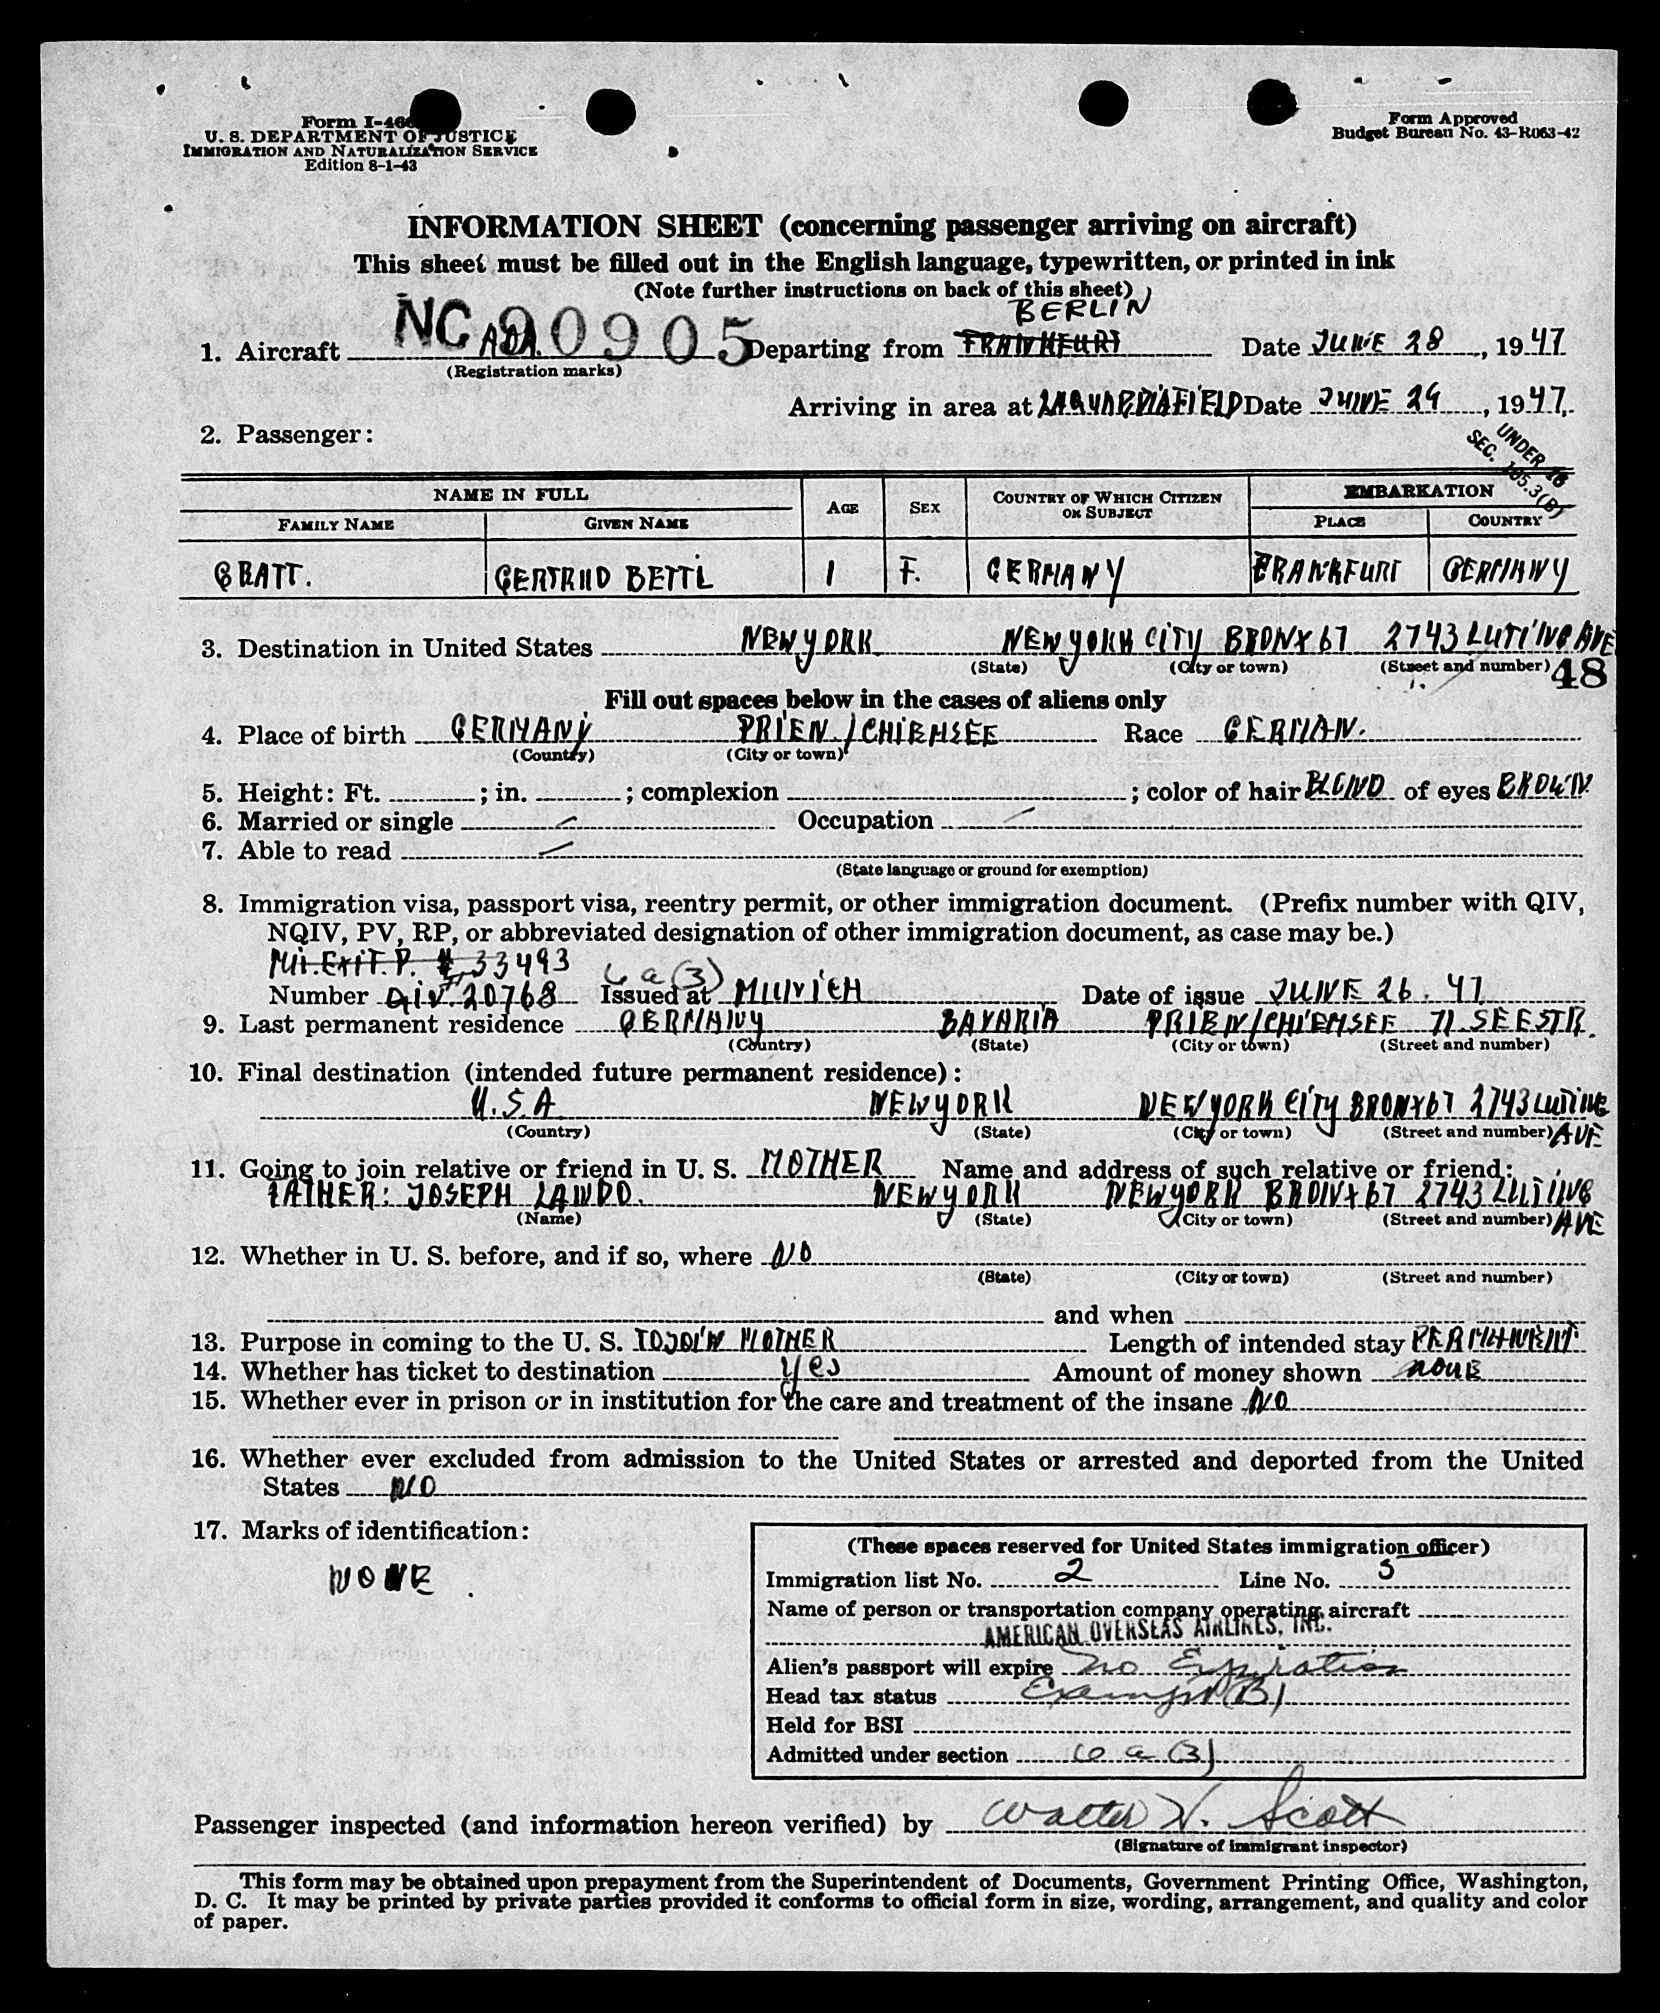 Form I-466
U. S. DEPARTMENT OF JUSTICE
IMMIGRATION AND NATURALIZATION SERVICE
Edition 8-1-43
Form Approved
Budget Bureau No. 43-R063-42
INFORMATION SHEET (concerning passenger arriving on aircraft)
This sheet must be filled out in the English language, typewritten, or printed in ink
(Note further instructions on back of this sheet)
BERLIN
1. Aircraft NC 90905 AOA. Departing from FRANKFURT Date JUNE 28, 1947
(Registration marks)
Arriving in area at LAGUARDIAFIELD Date JUNE 29, 1947.
2. Passenger:
UNDER 16
SEC. 105.3(B)
NAME IN FULL AGE SEX COUNTRY OF WHICH CITIZEN OR SUBJECT EMBARKATION
FAMILY NAME GIVEN NAME PLACE COUNTRY
GRATT. GERTRUD BETTI 1 F. GERMANY FRANKFURT GERMANY
3. Destination in United States NEWYORK NEWYORK CITY BRONX 67 2743 AVE
(State) (City or town) (Street and number) 48
Fill out spaces below in the cases of aliens only
4. Place of birth GERMANY PRIEN/CHIEMSEE Race GERMAN.
(Country) (City or town)
5. Height: Ft. ; in. ; complexion ; color of hair BLOND of eyes BROWN
6. Married or single – Occupation –
7. Able to read –
(State language or ground for exemption)
8. Immigration visa, passport visa, reentry permit, or other immigration document. (Prefix number with QIV,
NQIV, PV, RP, or abbreviated designation of other immigration document, as case may be.)
Mil.EXIT.P. # 33493
6 a (3)
Number QiV.#20768 Issued at MUNICH Date of issue JUNE 26. 47
9. Last permanent residence GERMANY BAVARIA PRIEN/CHIEMSEE 71 SEESTR.
(Country) (State) (City or town) (Street and number)
10. Final destination (intended future permanent residence):
U.S.A NEWYORK NEWYORK CITY BRONX 67 2743
(Country) (State) (City or town) (Street and number) AVE
11. Going to join relative or friend in U. S. MOTHER Name and address of such relative or friend:
FATHER: JOSEPH LANDO. NEWYORK NEWYORK BRONX 67 2743
(Name) (State) (City or town) (Street and number) AVE
12. Whether in U. S. before, and if so, where NO
(State) (City or town) (Street and number)
and when
13. Purpose in coming to the U. S. TO JOIN MOTHER Length of intended stay PERMANENT
14. Whether has ticket to destination yes Amount of money shown NONE
15. Whether ever in prison or in institution for the care and treatment of the insane NO
16. Whether ever excluded from admission to the United States or arrested and deported from the United
States NO
17. Marks of identification:
NONE.
(These spaces reserved for United States immigration officer)
Immigration list No. 2 Line No. 5
Name of person or transportation company operating aircraft
AMERICAN OVERSEAS AIRLINES, INC.
Alien's passport will expire No Expiration
Head tax status Exempt (B)
Held for BSI
Admitted under section 6 a (3)
Passenger inspected (and information hereon verified) by Walter V. Scott
(Signature of immigrant inspector)
This form may be obtained upon prepayment from the Superintendent of Documents, Government Printing Office, Washington,
D. C. It may be printed by private parties provided it conforms to official form in size, wording, arrangement, and quality and color
of paper.